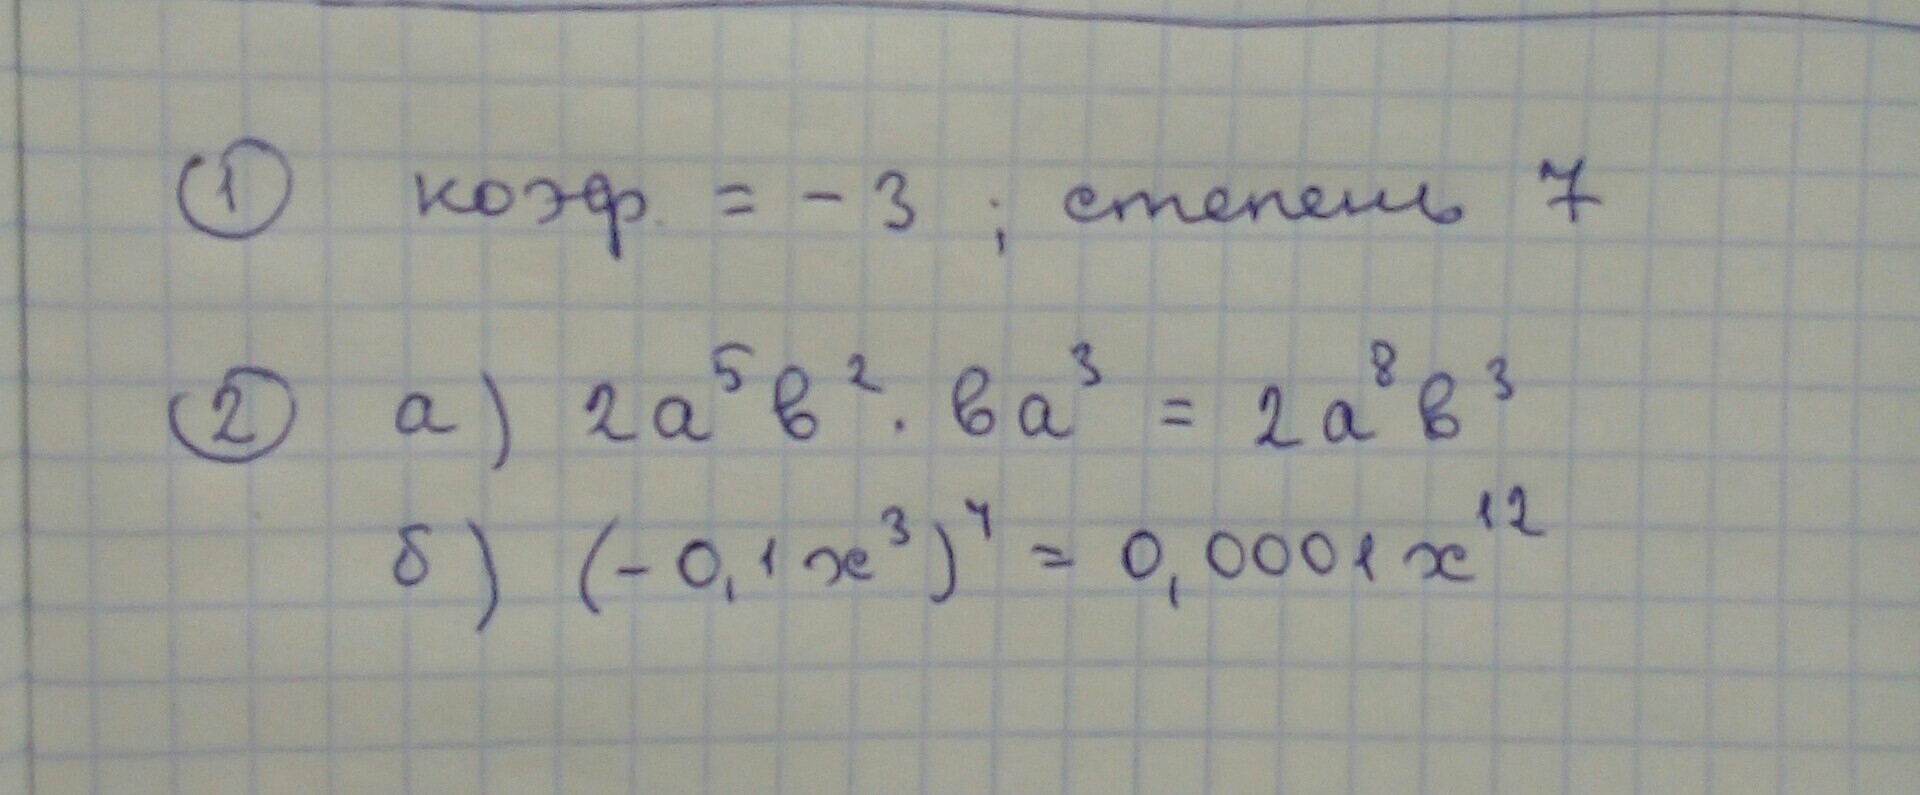 ① коэф. = - 3 ; степень 7
② а) 2a⁵в² · вa³ = 2a⁸в³
б) (- 0,1x³)⁴ = 0,0001x¹²